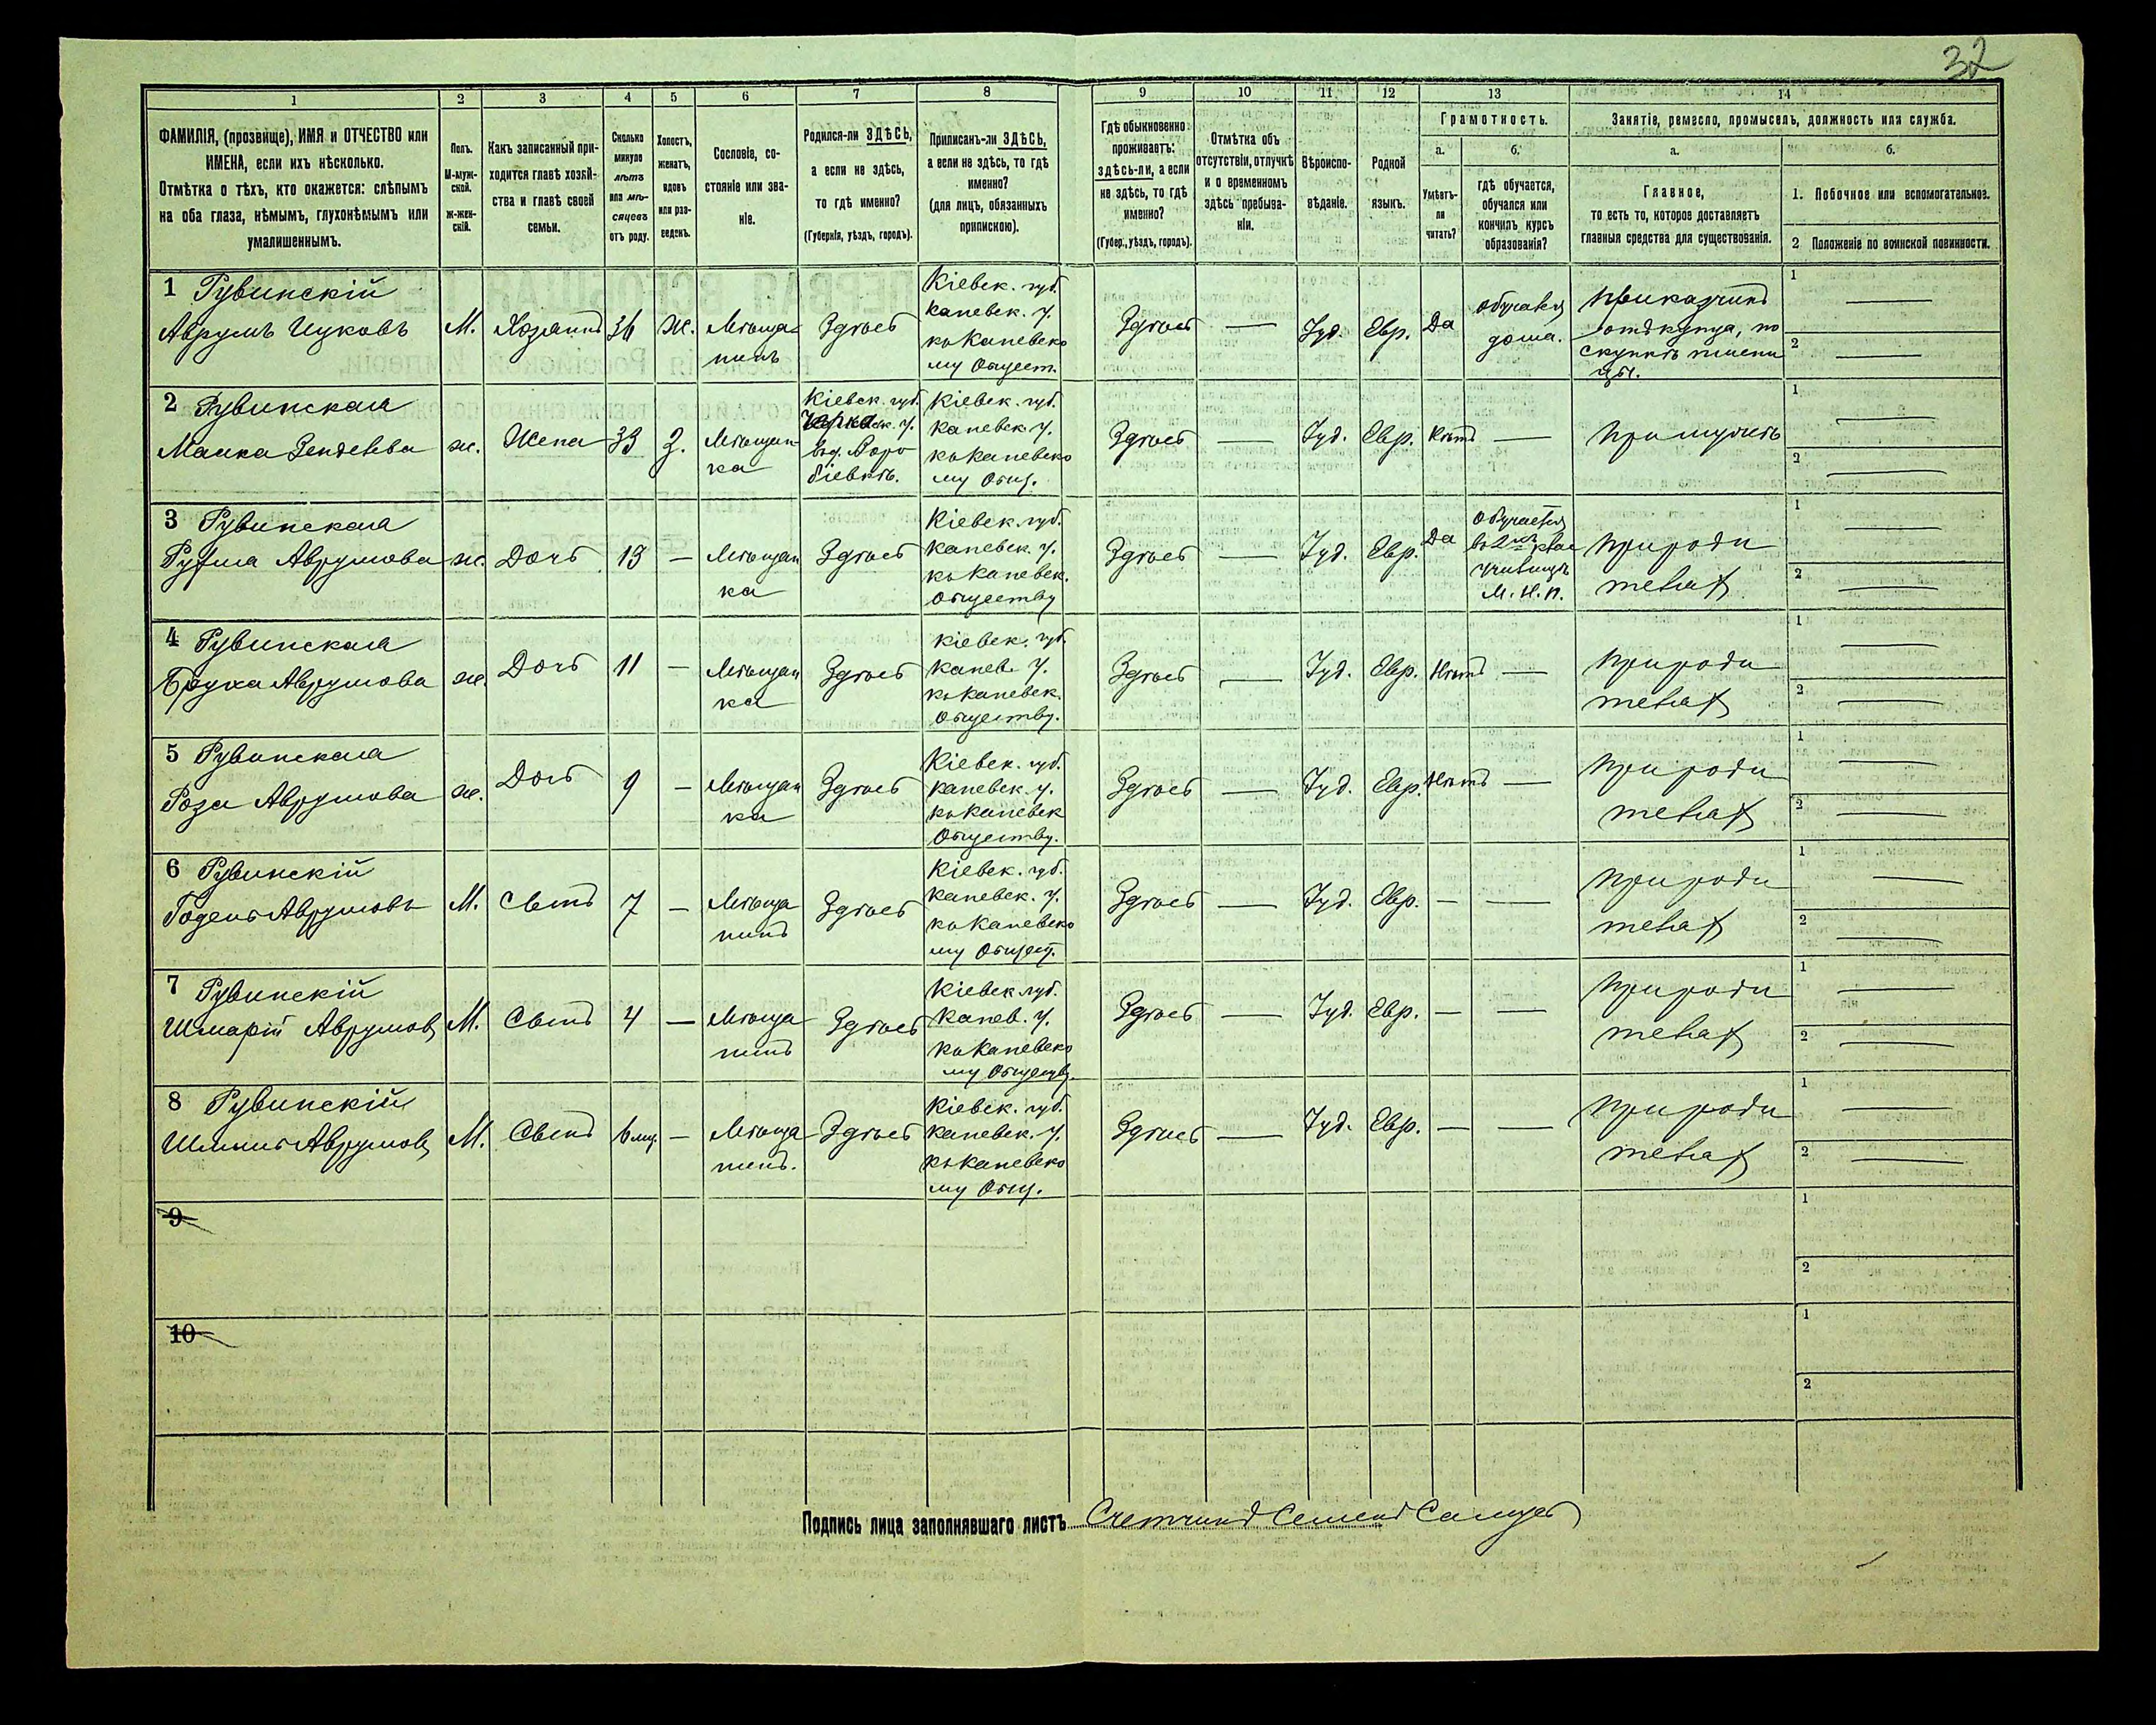 32
1
2
3
4
5
6
7
8
9
10
11
12
13
14
ФАМИЛІЯ, (прозвище), ИМЯ и ОТЧЕСТВО или
ИМЕНА, если ихъ нѣсколько.
Отмѣтка о тѣхъ, кто окажется: слѣпымъ
на оба глаза, нѣмымъ, глухонѣмымъ или
умалишеннымъ.
Полъ.
М-муж-
ской.
ж-жен-
скій.
Какъ записанный при-
ходится главѣ хозяй-
ства и главѣ своей
семьи.
Сколько
минуло
лѣтъ
или мѣ-
сяцевъ
отъ роду.
Холостъ,
женатъ,
вдовъ
или раз-
веденъ.
Сословіе, со-
стояніе или зва-
ніе.
Родился-ли ЗДѢСЬ,
а если не здѣсь,
то гдѣ именно?
(Губернія, уѣздъ, городъ).
Приписанъ-ли ЗДѢСЬ,
а если не здѣсь, то гдѣ
именно?
(для лицъ, обязанныхъ
припискою).
Гдѣ обыкновенно
проживаетъ:
здѣсь-ли, а если
не здѣсь, то гдѣ
именно?
(Губер., уѣздъ, городъ).
Отмѣтка объ
отсутствіи, отлучкѣ
и о временномъ
здѣсь пребыва-
ніи.
Вѣроиспо-
вѣданіе.
Родной
языкъ.
Грамотность.
а.
Умѣетъ-
ли
читать?
б.
гдѣ обучается,
обучался или
кончилъ курсъ
образованія?
Занятіе, ремесло, промыселъ, должность или служба.
а.
Главное,
то есть то, которое доставляетъ
главныя средства для существованія.
б.
1. Побочное или вспомогательное.
2 Положеніе по воинской повинности.
1 Рувинскій
Аврумъ Ицковъ
М.
Хозяинъ
36
Ж.
Мѣща-
нинъ
Здѣсь
Кіевск. губ.
Каневск. у.
къ Каневско
му Общест.
Здѣсь
—
Іуд.
Евр.
Да
обучался
дома.
Приказчикъ
по
скупкѣ пшени
цы.
1 —
2 —
2 Рувинская
Малка
ж.
Жена
33
З.
Мѣщан-
ка
Кіевск. губ.
Кіевск. губ.
Каневск. у.
къ Каневско
му Общ.
Здѣсь
—
Іуд.
Евр.
Нѣтъ
—
При мужѣ
1 —
2 —
3 Рувинская
Аврумова
ж.
Дочь
13
—
Мѣщан
ка
Здѣсь
Кіевск. губ.
Каневск. у.
къ Каневск.
Обществу
Здѣсь
—
Іуд.
Евр.
Да
Обучается
училищѣ
М. Н. П.
При роди
теляхъ
1 —
2 —
4 Рувинская
Бруха Аврумова
ж.
Дочь
11
—
Мѣщан
ка
Здѣсь
Кіевск. губ.
Канев. у.
къ Каневск.
Обществу.
Здѣсь
—
Іуд.
Евр.
Нѣтъ
—
При роди
теляхъ
1 —
2 —
5 Рувинская
Роза Аврумова
ж.
Дочь
9
—
Мѣщан
ка
Здѣсь
Кіевск. губ.
Каневск. у.
къ Каневск
Обществу.
Здѣсь
—
Іуд.
Евр.
Нѣтъ
—
При роди
теляхъ
1 —
2 —
6 Рувинскій
Годель Аврумовъ
М.
Сынъ
7
—
Мѣща
нинъ
Здѣсь
Кіевск. губ.
Каневск. у.
къ Каневско
му Общест.
Здѣсь
—
Іуд.
Евр.
—
—
При роди
теляхъ
1 —
2 —
7 Рувинскій
Шмарій Аврумовъ
М.
Сынъ
4
—
Мѣща
нинъ
Здѣсь
Кіевск губ.
Канев. у.
къ Каневско
му Обществу.
Здѣсь
—
Іуд.
Евр.
—
—
При роди
теляхъ
1 —
2 —
8 Рувинскій
Аврумовъ
М.
Сынъ
6 мц.
—
Мѣща
нинъ.
Здѣсь
Кіевск. губ.
Каневск. у.
къ Каневско
му Общ.
Здѣсь
—
Іуд.
Евр.
—
—
При роди
теляхъ
1 —
2 —
9
1
2
10
1
2
Подпись лица заполнявшаго листъ Счетчикъ Семенъ